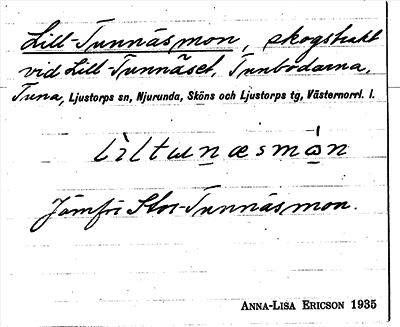 Lill-Tunnäsmon, skogstrakt
vid Lill-Tunnäset, Tunbodarna,
Tuna, Ljustorps sn, Njurunda, Sköns och Ljustorps tg, Västernorrl. l.
lìltunæsmón
Jämför Stor-Tunnäsmon.
ANNA-LISA ERICSON 1935